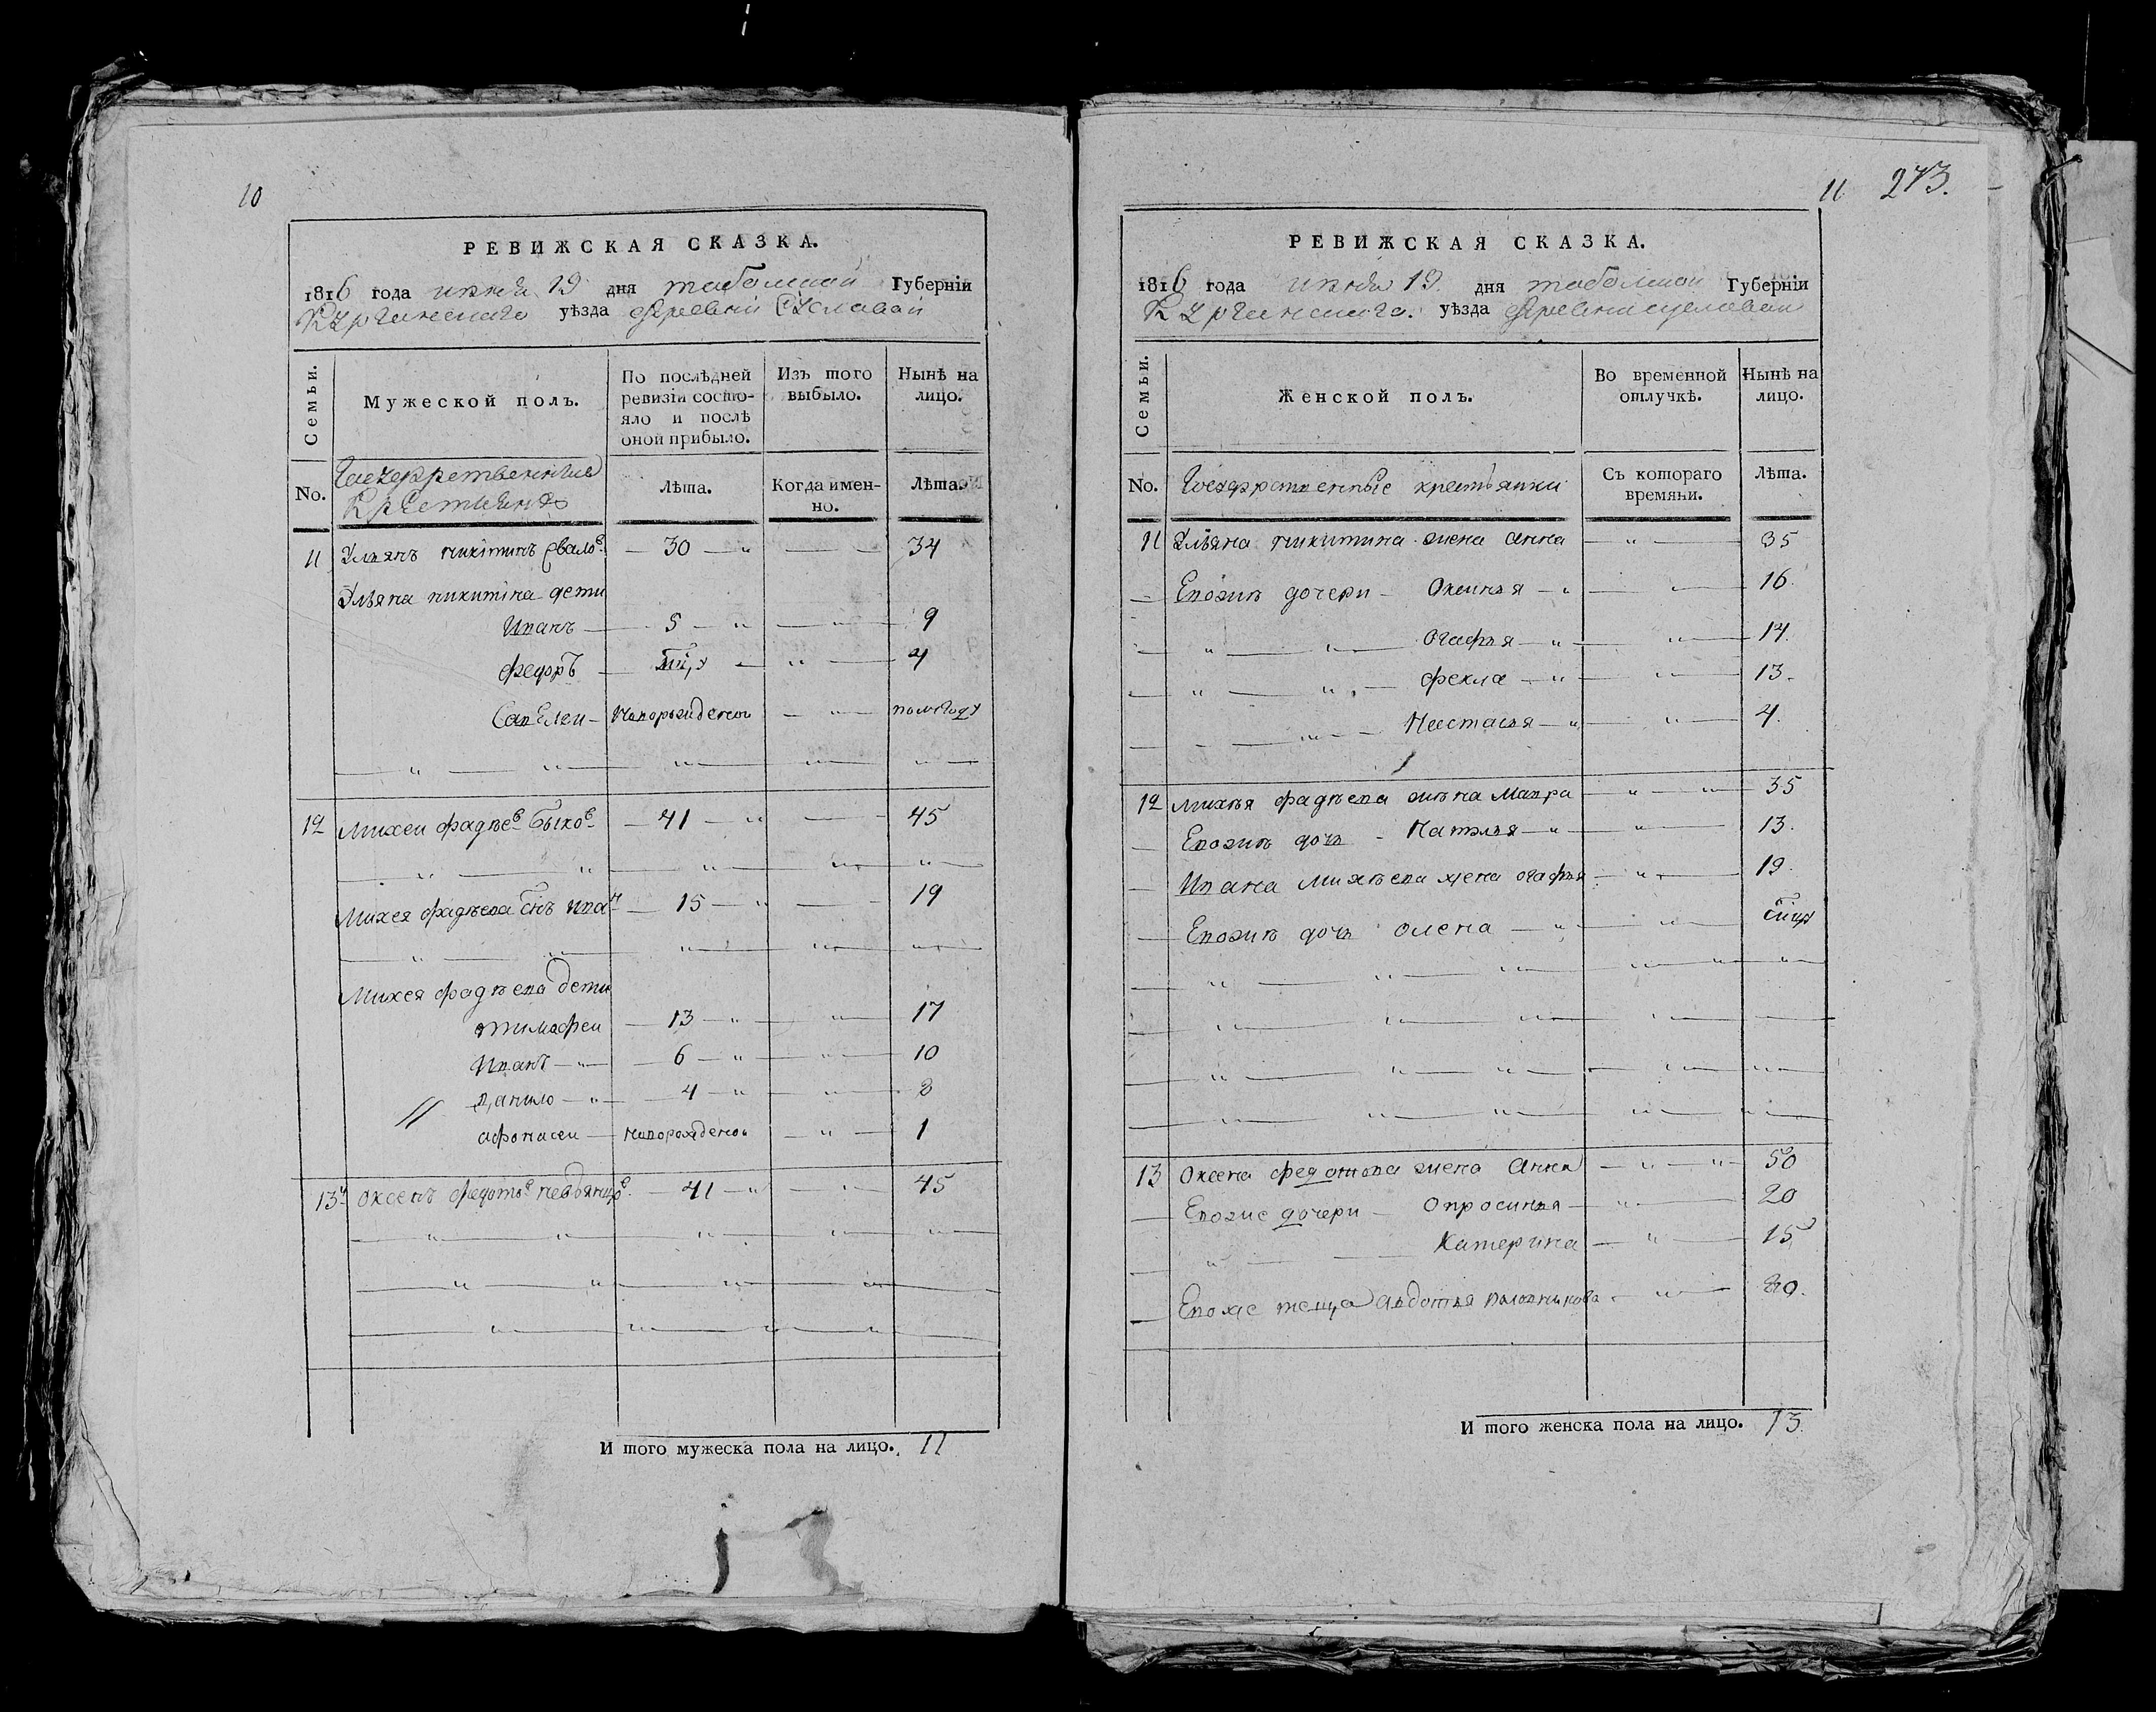 10
РЕВИЖСКАЯ СКАЗКА.
1816 года июня 19 дня тобольской Губерніи
Курганскаго уѣзда деревни
Семьи.
Мужеской полъ.
По послѣдней ревизіи состояло и послѣ оной прибыло.
Изъ того выбыло.
Нынѣ на лицо.
No.
Государственныя крестьянѣ
Лѣта.
Когда именно.
Лѣта.
11 Ульянъ никитинъ 30 34
Ульяна никитина дети
Иванъ 5 9
федоръ 4
Савелеи новорожденои полугоду
12 Михеи фадѣев Быков 41 45
Михея фадѣева снъ иван 15 19
Михея фадѣева дети
тимофеи 13 17
Иванъ 6 10
данило 4 8
афонасеи новорожденои 1
13 оксенъ федотов 41 45
И того мужеска пола на лицо. 11
11 273.
РЕВИЖСКАЯ СКАЗКА.
1816 года июня 19 дня тобольской Губерніи
Курганскаго. уѣзда деревни
Семьи.
Женской полъ.
Во временной отлучкѣ.
Нынѣ на лицо.
No.
Государственные крестьянки
Съ котораго времяни.
Лѣта.
11 Ульяна никитина жена анна 35
Евожъ дочери Оксинья 16
Огафья 14
фекла 13
Настасья 4
12 михѣя фадѣева жена Мавра 35
Евожъ дочь Наталья 13
Ивана михѣева жена огафья 19
Евожъ дочь олена
13 Оксена федотова жена анна 50
Евоже дочери Опросинья 20
Катерина 15
Евоже теща авдотья 80
И того женска пола на лицо. 13